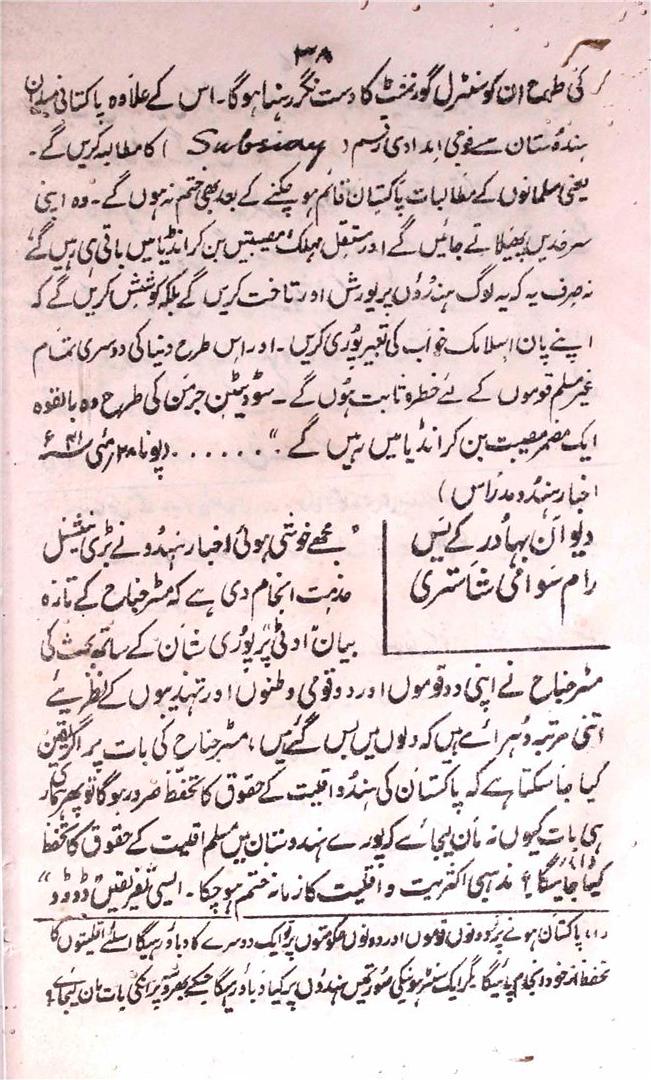 ۳۸
کی طرح ان کو سنٹرل گورنمنٹ کا دست نگر رہنا ہوگا۔ اس کے علاوہ پاکستانی
ہندوستان سے فوجی امدادی رقم (Subsidy) کا مطالبہ کریں گے۔
یعنی مسلمانوں کے مطالبات پاکستان قائم ہو چکنے کے بعد بھی ختم نہ ہوں گے۔ وہ اپنی
سرحدیں پھیلاتے جائیں گے اور مستقل مہلک مصیبتیں بن کر انڈیا میں باقی ہی رہیں گے،
نہ صرف یہ کہ یہ لوگ ہندوؤں پر یورش اور تاخت کریں گے بلکہ کوشش کریں گے کہ
اپنے پان اسلامک خواب کی تعبیر پوری کریں۔ اور اس طرح دنیا کی دوسری تمام
غیر مسلم قوموں کے لئے خطرہ ثابت ہوں گے۔ سوڈیٹن جرمن کی طرح وہ بالقوہ
ایک مضمر مصیبت بن کر انڈیا میں رہیں گے۔" ...... (پونا ۲۸ مئی ۴۱ء
اخبار ہندو مدراس)
دیوان بہادر کے یس
رام سوامی شاستری
"مجھے خوشی ہوئی اخبار ہندو نے بڑی نیشنل
خدمت انجام دی ہے کہ مسٹر جناح کے تازہ
بیان اوٹی پر پوری شان کے ساتھ بحث کی
مسٹر جناح نے اپنی دو قوموں اور دو قومی وطنوں اور تہذیبوں کے نظریئے
اتنی مرتبہ دُہرائے ہیں کہ دلوں میں بس گئے ہیں، مسٹر جناح کی بات پر اگر یقین
کیا جا سکتا ہے کہ پاکستان کی ہندو اقلیت کے حقوق کا تحفظ ضرور ہوگا تو پھر ہماری
ہی بات کیوں نہ مان لیجائے کہ پورے ہندوستان میں مسلم اقلیت کے حقوق کا تحفظ
کیا جائیگا؟ مذہبی اکثریت و اقلیت کا زمانہ ختم ہو چکا۔ ایسی تفریقیں "ڈوڈو"
(۱) پاکستان ہونے پر دونوں قوموں اور دونوں حکومتوں پر تو ایک دوسرے کا دباؤ رہیگا اسلئے اقلیتوں کا
تحفظ از خود انجام پا جائیگا مگر ایک سنٹر ہونیکی صورتمیں ہندوؤں پر کیا دباؤ رہیگا جسکے بھروسہ پر انکی بات مان لیجائے؟